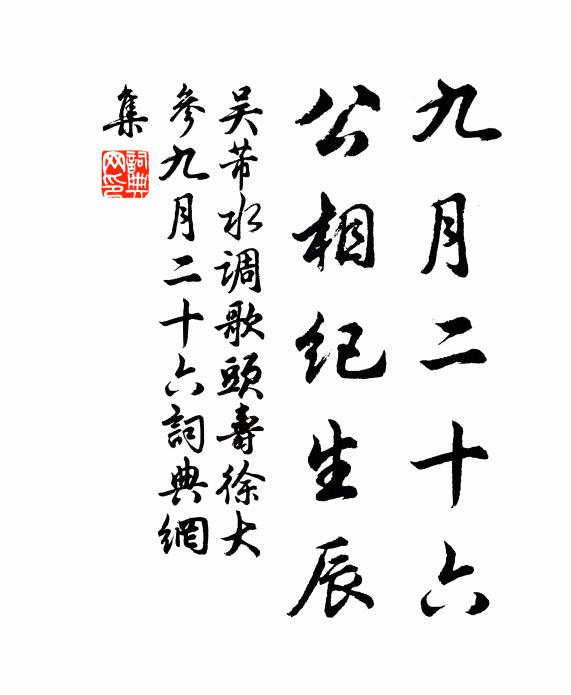 九月二十六
公相纪生辰
吴芾水调歌頭壽徐大
参九月二十六詞典網
集
詞典
网印